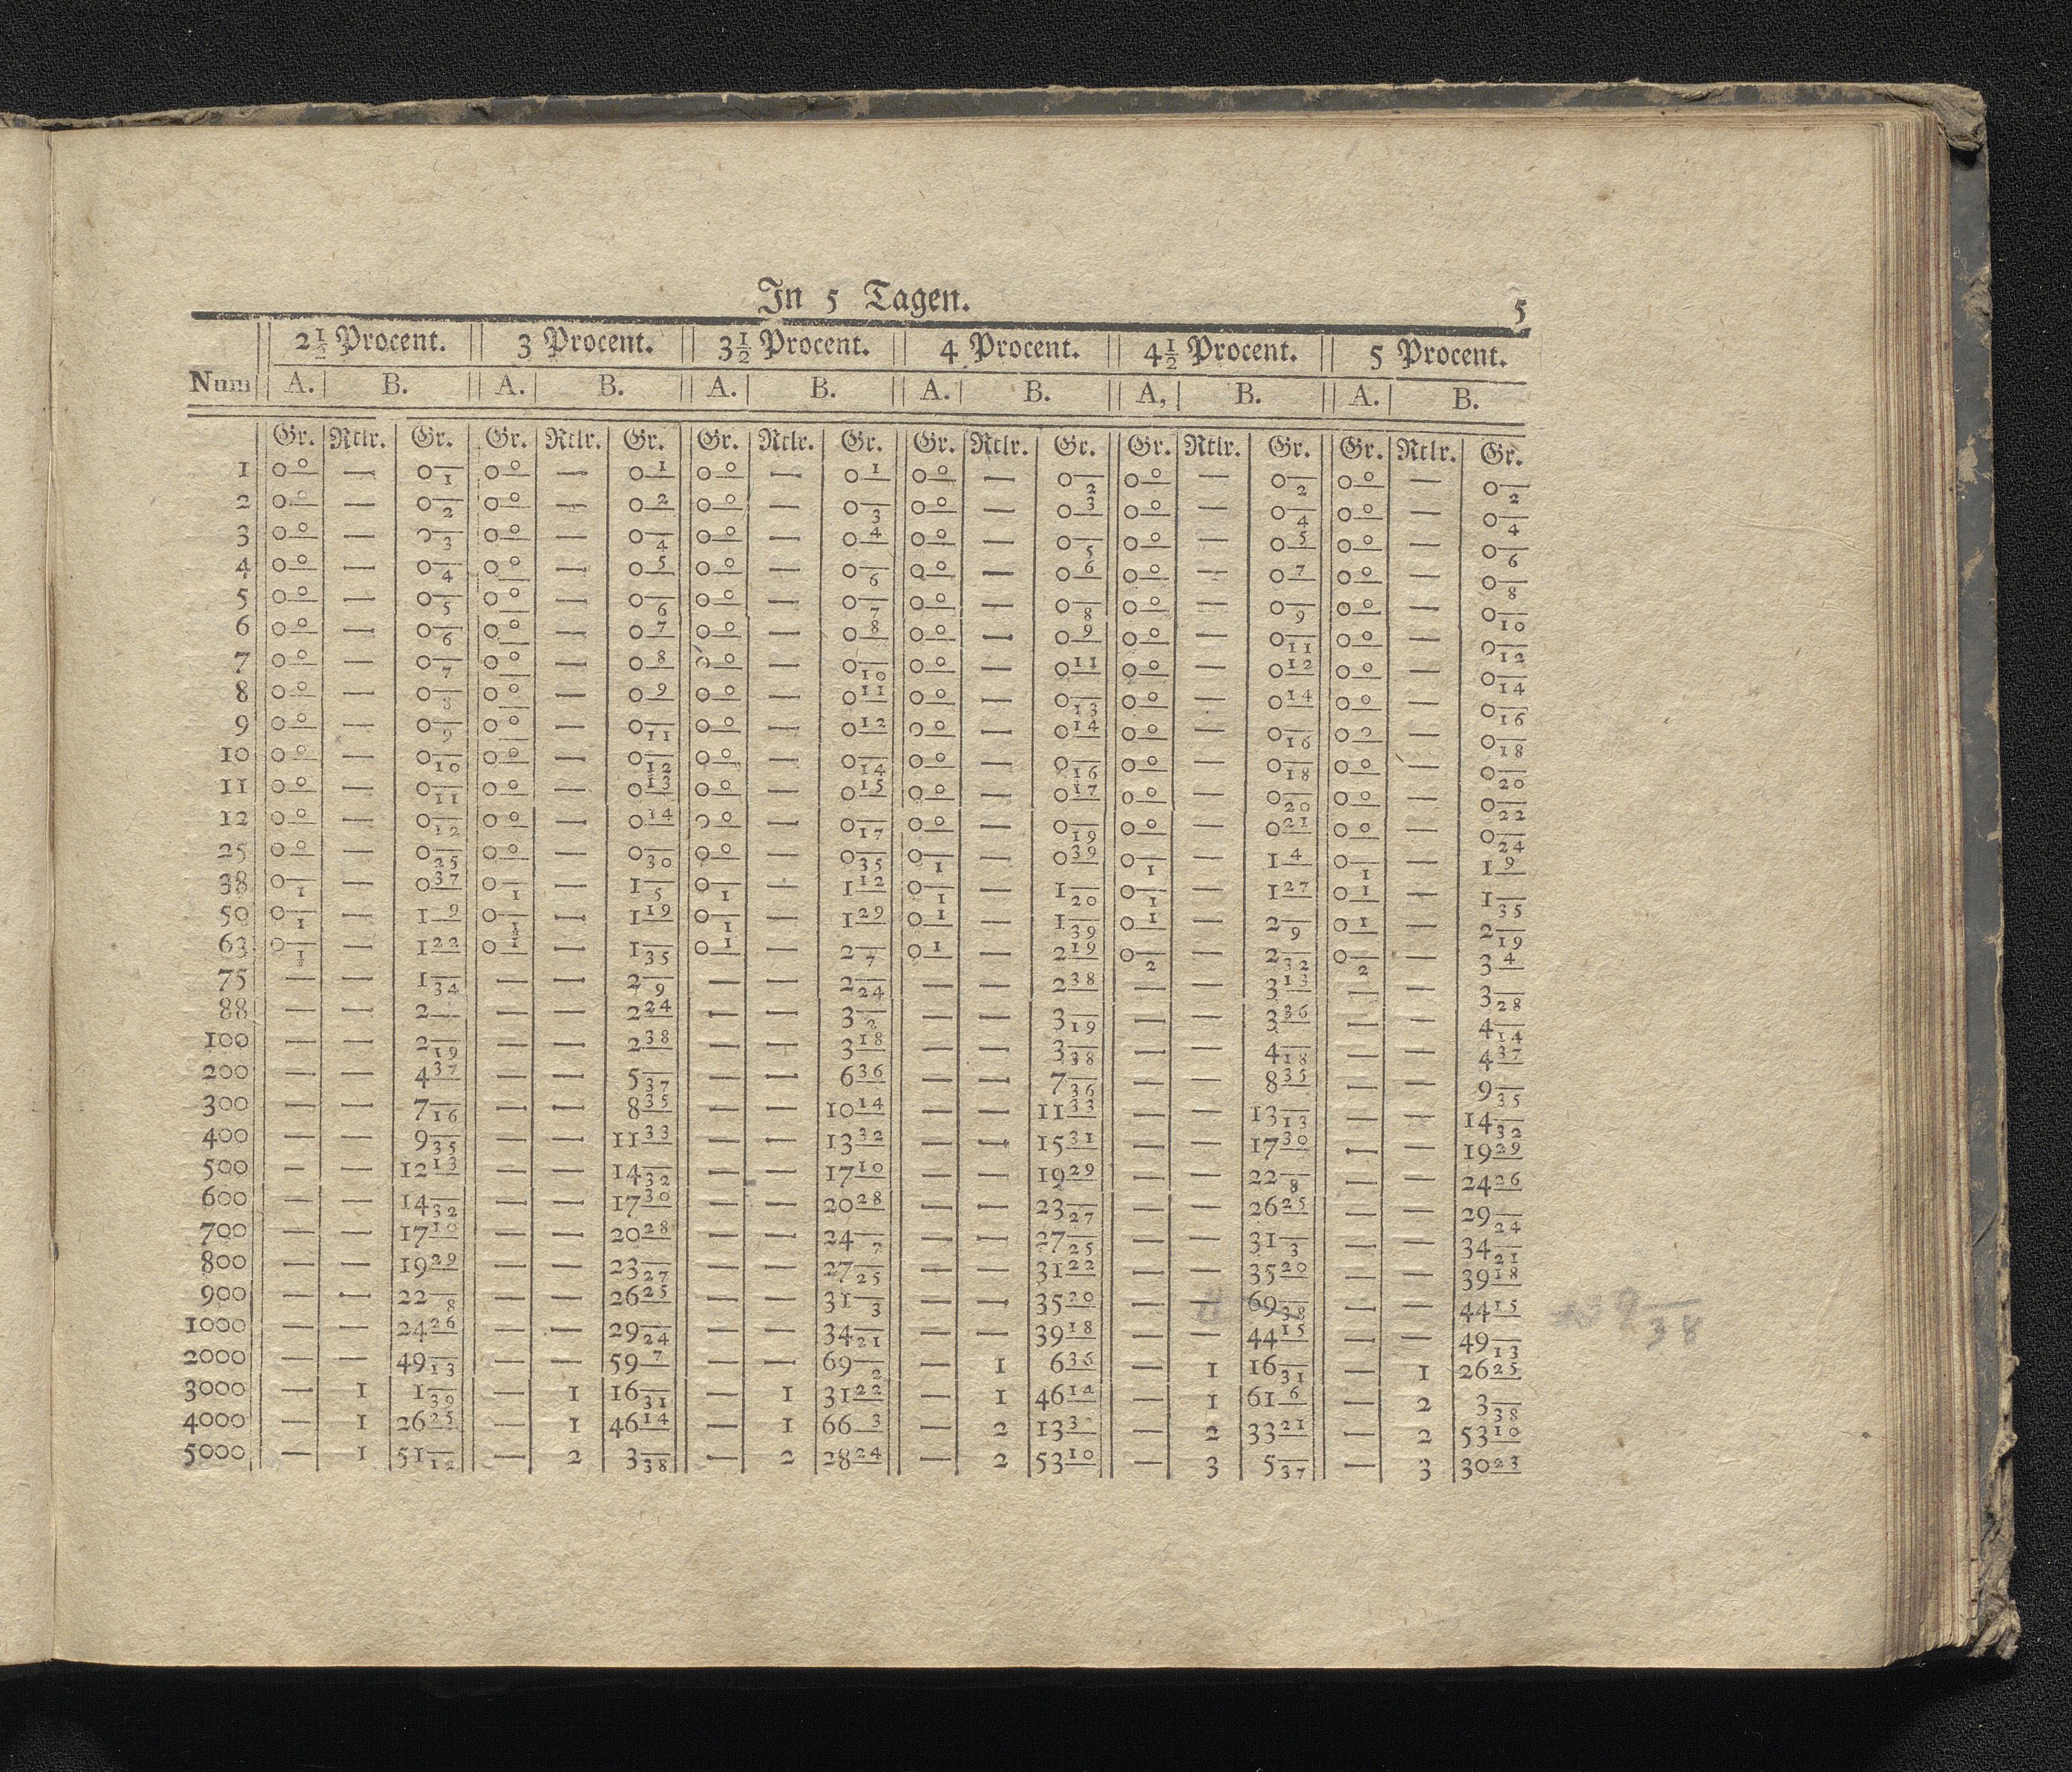 In 5 Tagen. 5
2½ Procent. 3 Procent. 3½ Procent. 4 Procent. 4½ Procent. 5 Procent.
Num A. B. A. B. A. B. A. B. A, B. A. B.
Gr. Rtlr. Gr. Gr. Rtlr. Gr. Gr. Rtlr. Gr. Gr. Rtlr. Gr. Gr. Rtlr. Gr. Gr. Rtlr. Gr.
1 0 0 — 0 1 0 0 — 0 1 0 0 — 0 1 0 0 — 0 2 0 0 — 0 2 0 0 — 0 2
2 0 0 — 0 2 0 0 — 0 2 0 0 — 0 3 0 0 — 0 3 0 0 — 0 4 0 0 — 0 4
3 0 0 — 0 3 0 0 — 0 4 0 0 — 0 4 0 0 — 0 5 0 0 — 0 5 0 0 — 0 6
4 0 0 — 0 4 0 0 — 0 5 0 0 — 0 6 0 0 — 0 6 0 0 — 0 7 0 0 — 0 8
5 0 0 — 0 5 0 0 — 0 6 0 0 — 0 7 0 0 — 0 8 0 0 — 0 9 0 0 — 0 10
6 0 0 — 0 6 0 0 — 0 7 0 0 — 0 8 0 0 — 0 9 0 0 — 0 11 0 0 — 0 12
7 0 0 — 0 7 0 0 — 0 8 0 0 — 0 10 0 0 — 0 11 0 0 — 0 12 0 0 — 0 14
8 0 0 — 0 8 0 0 — 0 9 0 0 — 0 11 0 0 — 0 13 0 0 — 0 14 0 0 — 0 16
9 0 0 — 0 9 0 0 — 0 11 0 0 — 0 12 0 0 — 0 14 0 0 — 0 16 0 0 — 0 18
10 0 0 — 0 10 0 0 — 0 12 0 0 — 0 14 0 0 — 0 16 0 0 — 0 18 0 0 — 0 20
11 0 0 — 0 11 0 0 — 0 13 0 0 — 0 15 0 0 — 0 17 0 0 — 0 20 0 0 — 0 22
12 0 0 — 0 12 0 0 — 0 14 0 0 — 0 17 0 0 — 0 19 0 0 — 0 21 0 0 — 0 24
25 0 0 — 0 25 0 0 — 0 30 0 0 — 0 35 0 1 — 0 39 0 1 — 1 4 0 1 — 1 9
38 0 1 — 0 37 0 1 — 1 5 0 1 — 1 12 0 1 — 1 20 0 1 — 1 27 0 1 — 1 35
50 0 1 — 1 9 0 1 — 1 19 0 1 — 1 29 0 1 — 1 39 0 1 — 2 9 0 1 — 2 19
63 0 1 — 1 22 0 1 — 1 35 0 1 — 2 7 0 1 — 2 19 0 2 — 2 32 0 2 — 3 4
75 — — 1 34 — — 2 9 — — 2 24 — — 2 38 — — 3 13 — — 3 28
88 — — 2 — — — 2 24 — — 3 2 — — 3 19 — — 3 36 — — 4 14
100 — — 2 19 — — 2 38 — — 3 18 — — 3 38 — — 4 18 — — 4 37
200 — — 4 37 — — 5 37 — — 6 36 — — 7 36 — — 8 35 — — 9 35
300 — — 7 16 — — 8 35 — — 10 14 — — 11 33 — — 13 13 — — 14 32
400 — — 9 35 — — 11 33 — — 13 32 — — 15 31 — — 17 30 — — 19 29
500 — — 12 13 — — 14 32 — — 17 10 — — 19 29 — — 22 8 — — 24 26
600 — — 14 32 — — 17 30 — — 20 28 — — 23 27 — — 26 25 — — 29 24
700 — — 17 10 — — 20 28 — — 24 7 — — 27 25 — — 31 3 — — 34 21
800 — — 19 29 — — 23 27 — — 27 25 — — 31 22 — — 35 20 — — 39 18
900 — — 22 8 — — 26 25 — — 31 3 — — 35 20 — — 69 38 — — 44 15
1000 — — 24 26 — — 29 24 — — 34 21 — — 39 18 — — 44 15 — — 49 13
2000 — — 49 13 — — 59 7 — — 69 2 — 1 6 36 — 1 16 31 — 1 26 25
3000 — 1 1 39 — 1 16 31 — 1 31 22 — 1 46 14 — 1 61 6 — 2 3 38
4000 — 1 26 25 — 1 46 14 — 1 66 3 — 2 13 3 — 2 33 21 — 2 53 10
5000 — 1 51 12 — 2 3 38 — 2 28 24 — 2 53 10 — 3 5 37 — 3 30 23
38